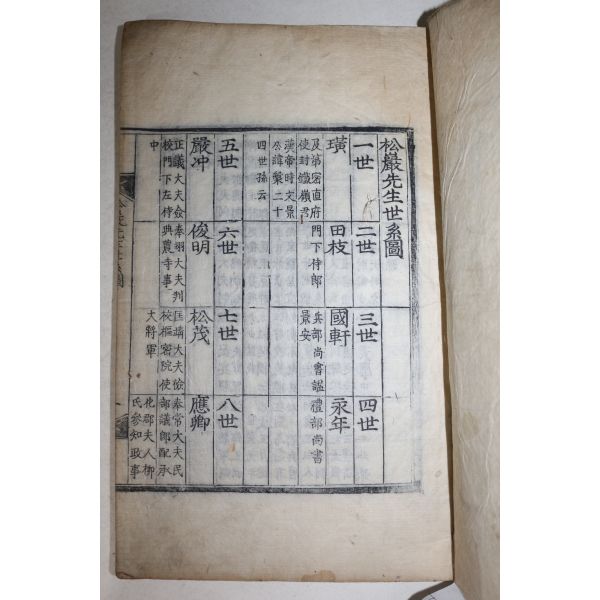 松巖先生世系圖
一世 二世 三世 四世
璜 田枝 國軒 永年
及第密直府 門下侍郎 兵部尚書謚 禮部尚書
使封鐵嶺君 景安
漢帝時文景
四世孫云
五世 六世 七世 八世
嚴冲 俊明 松茂 應卿
正議大夫儉 奉翊大夫判 匡靖大夫儉 奉常大夫民
校門下左侍 典農寺事 校樞密院使 部議郎配承
中 大將軍 化郡夫人柳
氏參知政事